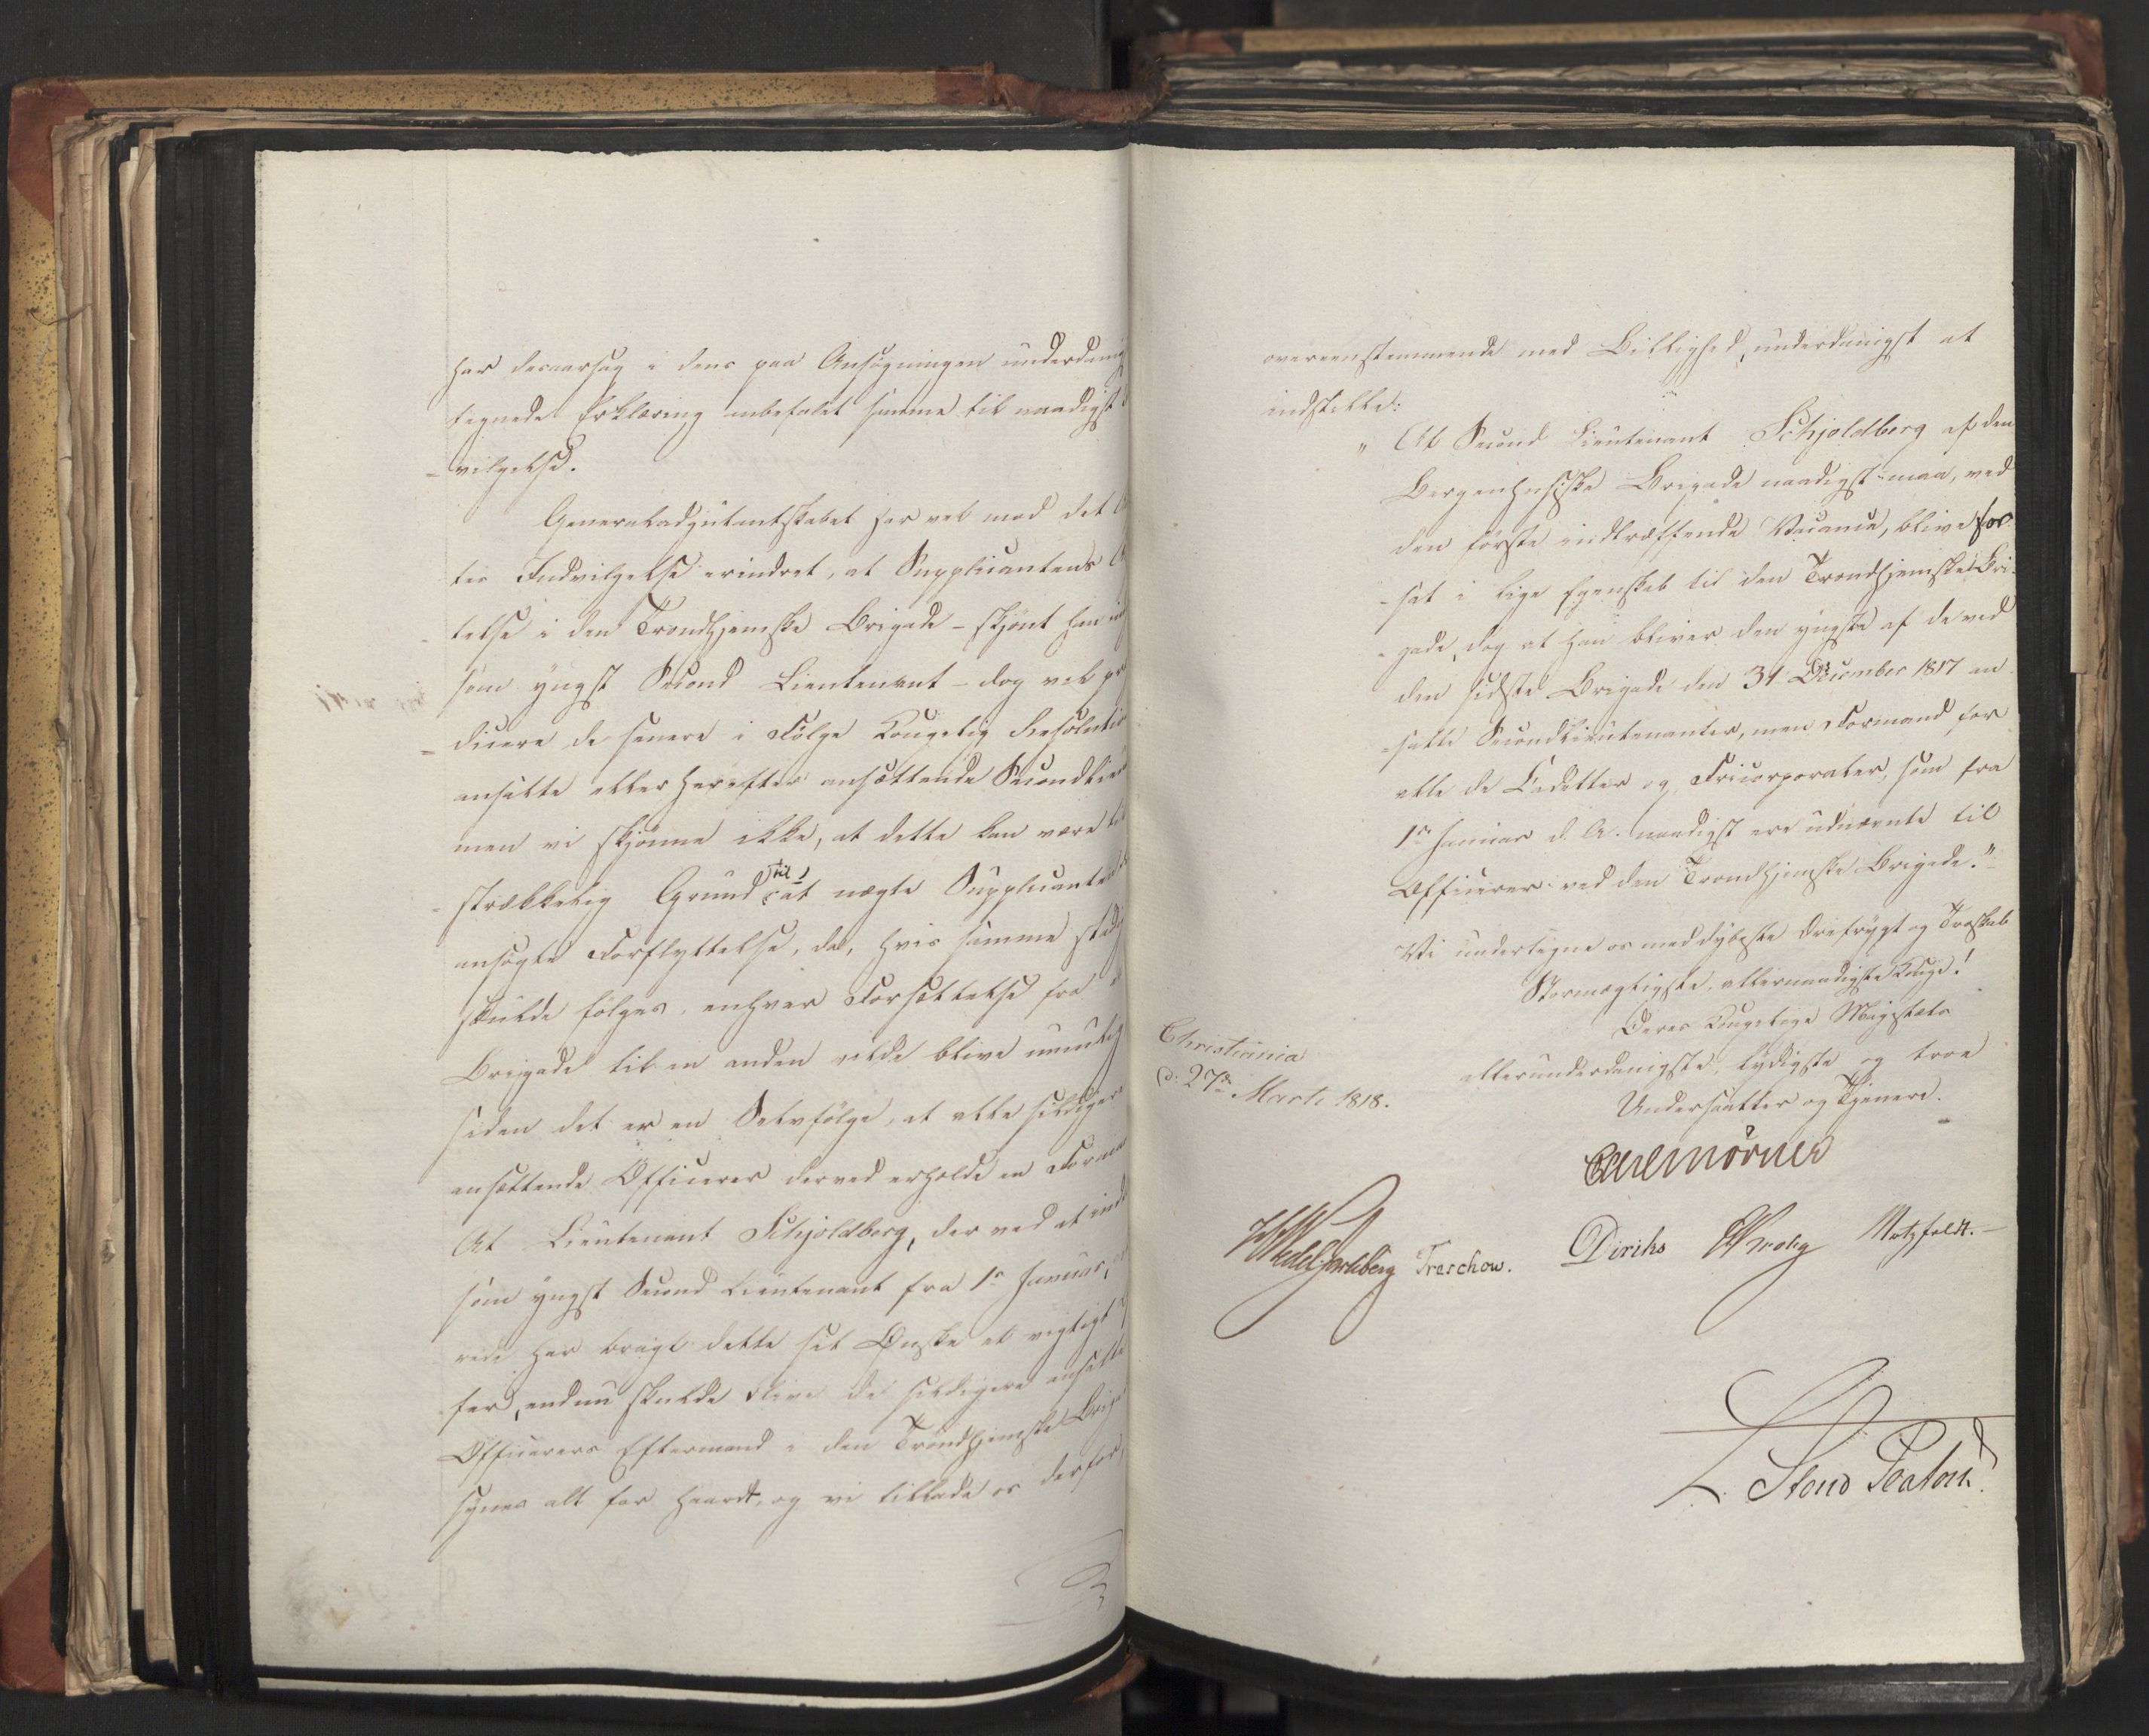 har desaarsag i dens paa Ansøgningen underdanig
tegnede Erklæring anbefalet samme til naadigst
-vilgelse.
Generaladjutantskabet har vel mod det
tes Indvilgelse erindret, at Supplicantens
telse i den Trondhjemske Brigade - skjönt han
som yngst Second Lieutenant - dog vil
- dicere de senere i Fölge Kongelig Resolution
ansatte eller herefter ansættende Secondlieu
men vi skjönne ikke, at dette kan være til
- strækkelig Grund til at negte Supplicanten
ansögte Forflyttelse, da, hvis samme
skulde fölges, enhver Forsættelse fra
Brigade til en anden vilde blive umulig
siden det er en Selvfölge, at alle sildigere
ansættende Officerer derved erholde en Formand
At Lieutenant Schjoldberg, der ved at
som yngst Second Lieutenant fra 1r Januar,
rede har bragt dette sit Önske et vigtigt
fer, endnu skulde blive de sildigere ansatte
Officerers Eftermand i den Trondhjemske Briga
synes alt for haardt, og vi tillade os derfor,
overeensstemmende med Billighed, underdanigst at
indstille:
" At Second Lieutenant Schjoldberg af den
Bergenhusiske Brigade naadigst maa, ved
den förste indtræffende Vacance, blive for
- sat i lige Egenskab til den Trondhjemske Bri-
- gade, dog at han bliver den yngste af de ved
den sidste Brigade den 31 December 1817 an
- satte Secondlieutenanter, men Formand for
alle de Cadetter og Fricorporaler, som fra
1r Januar d. A. naadigst ere udnævnte til
Officerer ved den Trondhjemske Brigade."
Vi undertegne os med dybeste Ærefrygt og Troskab
Stormægtigste, allernaadigste Konge!
Deres Kongelige Majestæts
allerunderdanigste, lydigste og troe
Undersaatter og Tjenere.
Christiania
d: 27de Marts 1818.
Carl Mörner
HWedel Jarlsberg Treschow. Diriks Krohg Motzfeldt.
Stoud Platou.